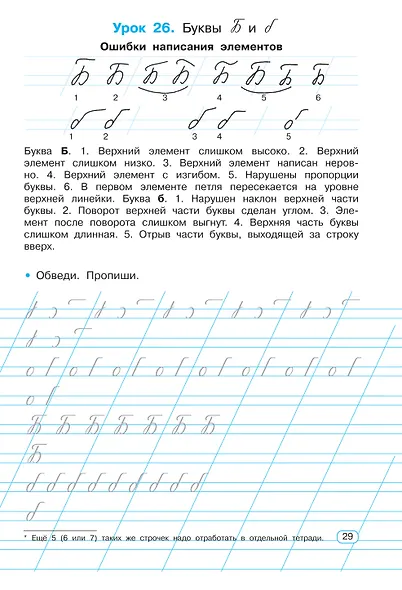 Урок 26. Буквы Б и б
Ошибки написания элементов
Б Б Б Б Б Б Б Б
1 2 3 4 5 6
б б б б б
1 2 3 4 5
Буква Б. 1. Верхний элемент слишком высоко. 2. Верхний
элемент слишком низко. 3. Верхний элемент написан неров-
но. 4. Верхний элемент с изгибом. 5. Нарушены пропорции
буквы. 6. В первом элементе петля пересекается на уровне
верхней линейки. Буква б. 1. Нарушен наклон верхней части
буквы. 2. Поворот верхней части буквы сделан углом. 3. Эле-
мент после поворота слишком выгнут. 4. Верхняя часть буквы
слишком длинная. 5. Отрыв части буквы, выходящей за строку
вверх.
• Обведи. Пропиши.
Б Б Б Б Б Б Б
Б
б б б б б б б б б
б
* Ещё 5 (6 или 7) таких же строчек надо отработать в отдельной тетради.
29